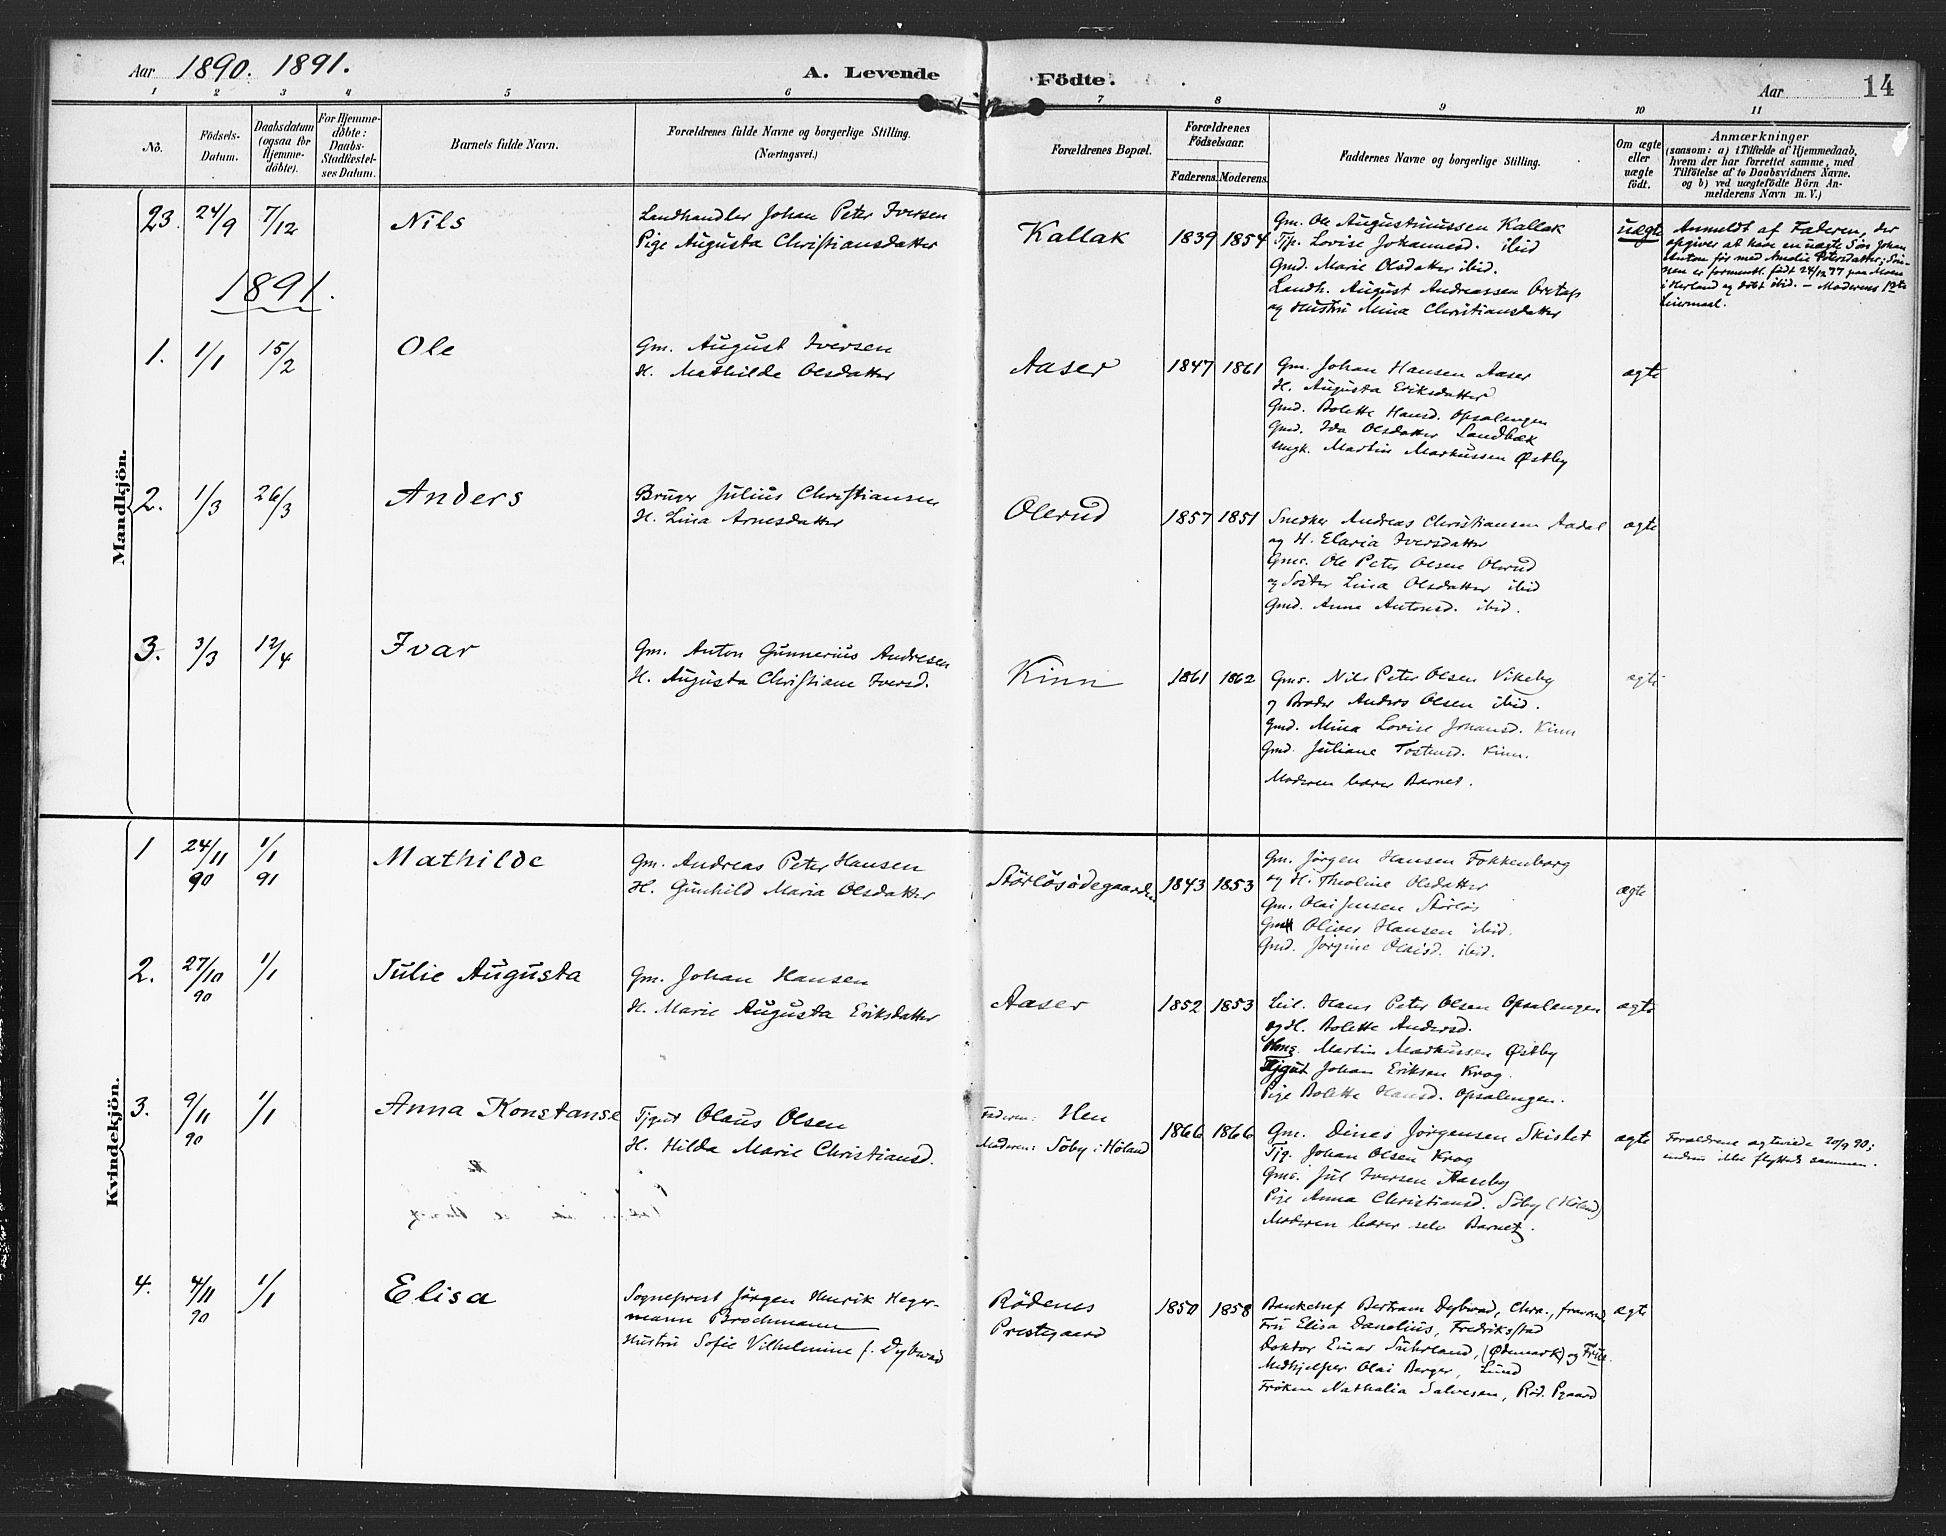 Aar 1890. 1891. A. Levende Födte. Aar 14
1 2 3 4 5 6 7 8 9 10 11
No. Födsels-Datum. Daabsdatum (ogsaa for Hjemme-döbte). For Hjemme-döbte: Daabs-Stadfæstel-ses Datum. Barnets fulde Navn. Forældrenes fulde Navne og borgerlige Stilling. (Næringsvei.) Forældrenes Bopæl. Forældrenes Födselsaar. Faderens. Moderens. Faddernes Navne og borgerlige Stilling. Om ægte eller uægte födt. Anmærkninger (saasom: a) i Tilfælde af Hjemmedaab, hvem der har forrettet samme, med Tilföielse af to Daabsvidners Navne. og b) ved uægtefödte Börn An-melderens Navn m. V.)
Mandkjön.
23. 24/9 7/12 Nils
Landhandler Johan Peter Iversen
Pige Augusta Christiansdatter
Kallak 1839 1854
Gm. Ole Augustinussen Kallak
Tjp. Lovise Johannesd. ibid
Gmd. Marie Olsdatter ibid.
Landh. August Andreassen
og Hustru Mina Christiansdatter
uægte
Anmeldt af Faderen, der
opgiver at have en uægte Søn Johan
Anton før med Amalie Petersdatter;
nen er forment. født 24/12 77 paa
og døbt ibid. – Moderens 1ste
Leiermaal.
1891.
1. 1/1 15/2 Ole
Gm. August Iversen
H. Mathilde Olsdatter
Aaser 1847 1861
Gm. Johan Hansen Aaser
H. Augusta Eriksdatter
Gmd. Bolette Hansd. Opsalengen
Gmd. Ida Olsdatter Sandbæk
Ungk. Martin Markussen Østby
ægte
2. 1/3 26/3 Anders
Bruger Julius Christiansen
H. Lina Arnesdatter
Olerud 1857 1851
Snedker Andreas Christiansen Aadal
og H. Elaria Iversdatter
Gms. Ole Peter Olsen Olerud
og Søster Lina Olsdatter ibid
Gmd. Anna Antonsd. ibid.
ægte
3. 3/3 12/4 Ivar
Gm. Anton Gunnerius Andresen
H. Augusta Christiane Iversd.
Kinn 1861 1862
Gms. Nils Peter Olsen Vikeby
og Broder Anders Olsen ibid.
Gmd. Mina Lovise Johansd. Kinn
Gmd. Juliane Tostensd. Kinn.
Moderen bærer Barnet.
ægte
Kvindekjön.
1 24/11 90 1/1 91 Mathilde
Gm. Andreas Peter Hansen
H. Gunhild Maria Olsdatter
Störlösödegaarden 1843 1853
Gm. Jørgen Hansen Fokkenborg
og H. Theoline Olsdatter
Gm. Olai Jensen Störlös
Oliver Hansen ibid.
Gmd. Jørgine Olaisd. ibid.
ægte
2. 27/10 90 1/1 Julie Augusta
Gm. Johan Hansen
H. Marie Augusta Eriksdatter
Aaser 1852 1853
Leil. Hans Peter Olsen Opsalengen
og H. Bolette Andersd.
Martin Markussen Østby
Tjgut Johan Eriksen Krog.
Pige Bolette Hansd. Opsalengen.
ægte
3. 9/11 90 1/1 Anna Konstanse
Tjgut Olaus Olsen
H. Hilda Marie Christiansd.
Faderen: Hen
Moderen: Söby i Høland
1866 1866
Gm. Dines Jørgensen Skislet
Tjg. Johan Olsen Krog
Gms. Jul Iversen Aaseby
Pige Anna Christiansd. Söby (Höland)
Moderen bærer selv Barnet.
ægte
Forældrene ægteviede 20/9 90;
endnu ikke flyttede sammen.
4. 4/11 90 1/1 Elisa
Sogneprest Jörgen Henrik Heger-
mann Brochmann
Hustru Sofie Vilhelmine f. Dybwad
Rödenes
Prestegaard
1850 1858
Bankchef Bertram Dybwad, Chra., fravær.
Fru Elisa Danelius, Fredriksstad
Doktor Einar Suhrland, (Ødemark) og Frue.
Medhjelper Olai Berger, Lund
Frøken Nathalia Salvesen, Röd. Pgaard
ægte